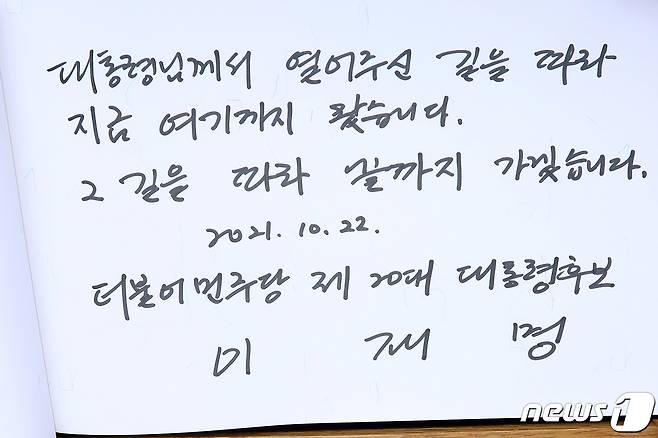 대통령님께서 열어주신 길을 따라
지금 여기까지 왔습니다.
그 길을 따라 끝까지 가겠습니다.
2021. 10. 22.
더불어민주당 제 20대 대통령후보
이 재 명
news1